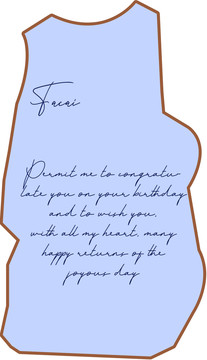 Facai
Permit me to congratu-
late you on your birthday
and to wish you,
with all my heart, many
happy returns of the
joyous day